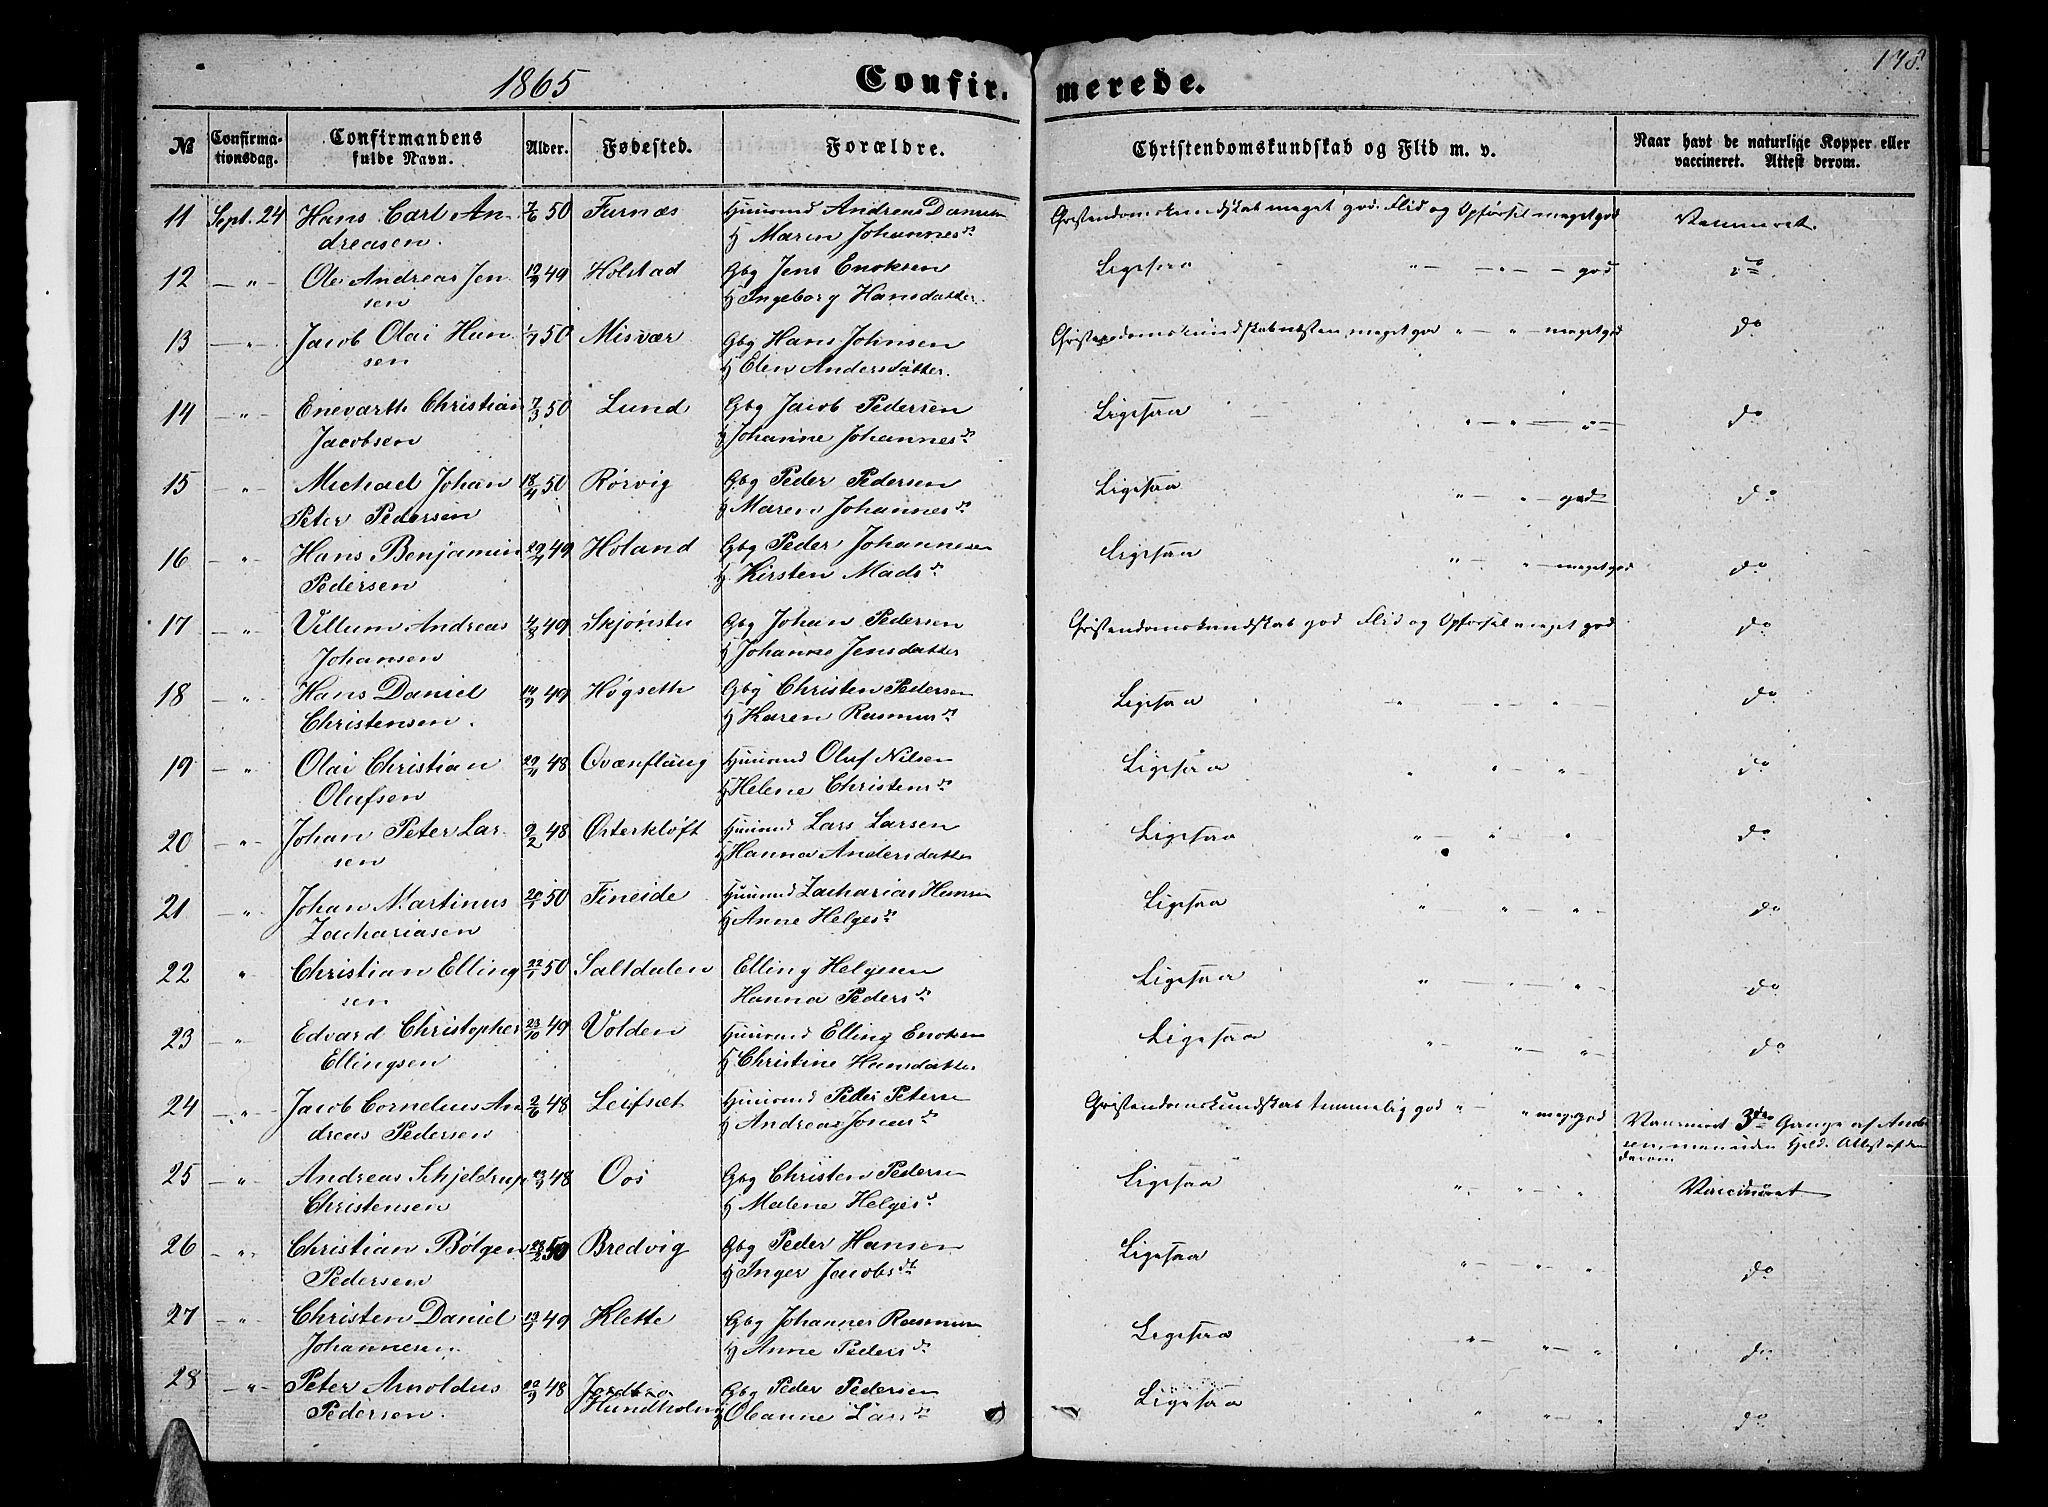 1865 Confir- merede. 148.
№ Confirmationsdag. Confirmandens fulde Navn. Alder. Fødested. Forældre. Christendomskundskab og Flid m. v. Naar havt de naturlige Kopper eller vaccineret. Attest derom.
11 Sept. 24 Hans Carl An- 7/6 50 Furnæs Huusmd Andreas Christendomskundskab meget god. Flid og Opførsel meget god Vaccineret.
dreasen. H Maren Johannesdr
12 — " — Ole Andreas Jen 49 Holstad Gbg Jens Enoksen Ligesaa " — " — god do
sen H Ingeborg Hansdatter.
13 — " — Jacob Olai Han 50 Misvær Gbg Hans Johnsen Christendomskundskab næsten meget god " — " — meget god do
sen H Elen Andersdatter.
14 — " — Enevarth Christian 7/3 50 Lund Gbg Jacob Pedersen Ligesaa " — " — " — do
Jacobsen H Johanne Johannesdr
15 — " — Michael Johan 18/4 50 Rørvig Gbg Peder Pedersen Ligesaa " — " — god do
Peter Pedersen H Maren Johannesdr
16 — " — Hans Benjamin 49 Holand Gbg Peder Johannesen Ligesaa " — " — meget god do
Pedersen H. Kirsten Madsdr
17 — " — Villum Andreas 49 Skjønstu Gbg Johan Pedersen Christendomskundskab god Flid og Opførsel meget god do
Johansen H Johanne Jensdatter
18 — " — Hans Daniel 49 Høgseth Gbg Christen Pedersen Ligesaa " — " — " — do
Christensen. H Karen Rasmusdr
19 — " — Olai Christian 48 Qvænflaug Huusmd Oluf Nilsen Ligesaa " " — " — do
Olufsen H Helene Christensdr
20 — " — Johan Peter Lar- 2/2 48 Østerkløft Huusmd Lars Larsen Ligesaa " — " — " do
sen H Hanna Andersdatter
21 — " — Johan Martinus 50 Fineide Huusmd Zacharias Hansen Ligesaa " " — " — do
Zachariasen H Anne Helgesdr
22 " Christian Elling 22/1 50 Saltdalen Elling Helgesen Ligesaa " — " — " — do
sen Hanna Pedersdr
23 " Edvard Christopher 23/10 49 Volden Huusmd Elling Enoksen Ligesaa " — " — " — do
Ellingsen H Christine Hansdatter
24 — " — Jacob Cornelius An 2/6 48 Leifsæt Huusmd Peder Petersen Christendomskundskab temmelig god " — " meget god Vaccineret 3de Gange af Ander
dreas Pedersen H Andrea Jonasdr sen, men uden Held. Attest af den
derom
25 — " — Andreas Schjeldrup 48 Oos Gbg Christen Pedersen Ligesaa " — " — " Vaccineret
Christensen H Malene Helgesdr
26 — " — Christian Bølgen 50 Bredvig Gbg Peder Hansen Ligesaa " — " — " do
Pedersen H Inger Jacobsdr
27 — " — Christen Daniel 49 Klette Gbg Johannes Rasmusen Ligesaa " — " — " do
Johannesen H Anne Pedersdr
28 — " — Peter Arnoldus 48 Gbg Peder Pedersen Ligesaa " " — " do
Pedersen. Hundholm H Oleanne Larsdr